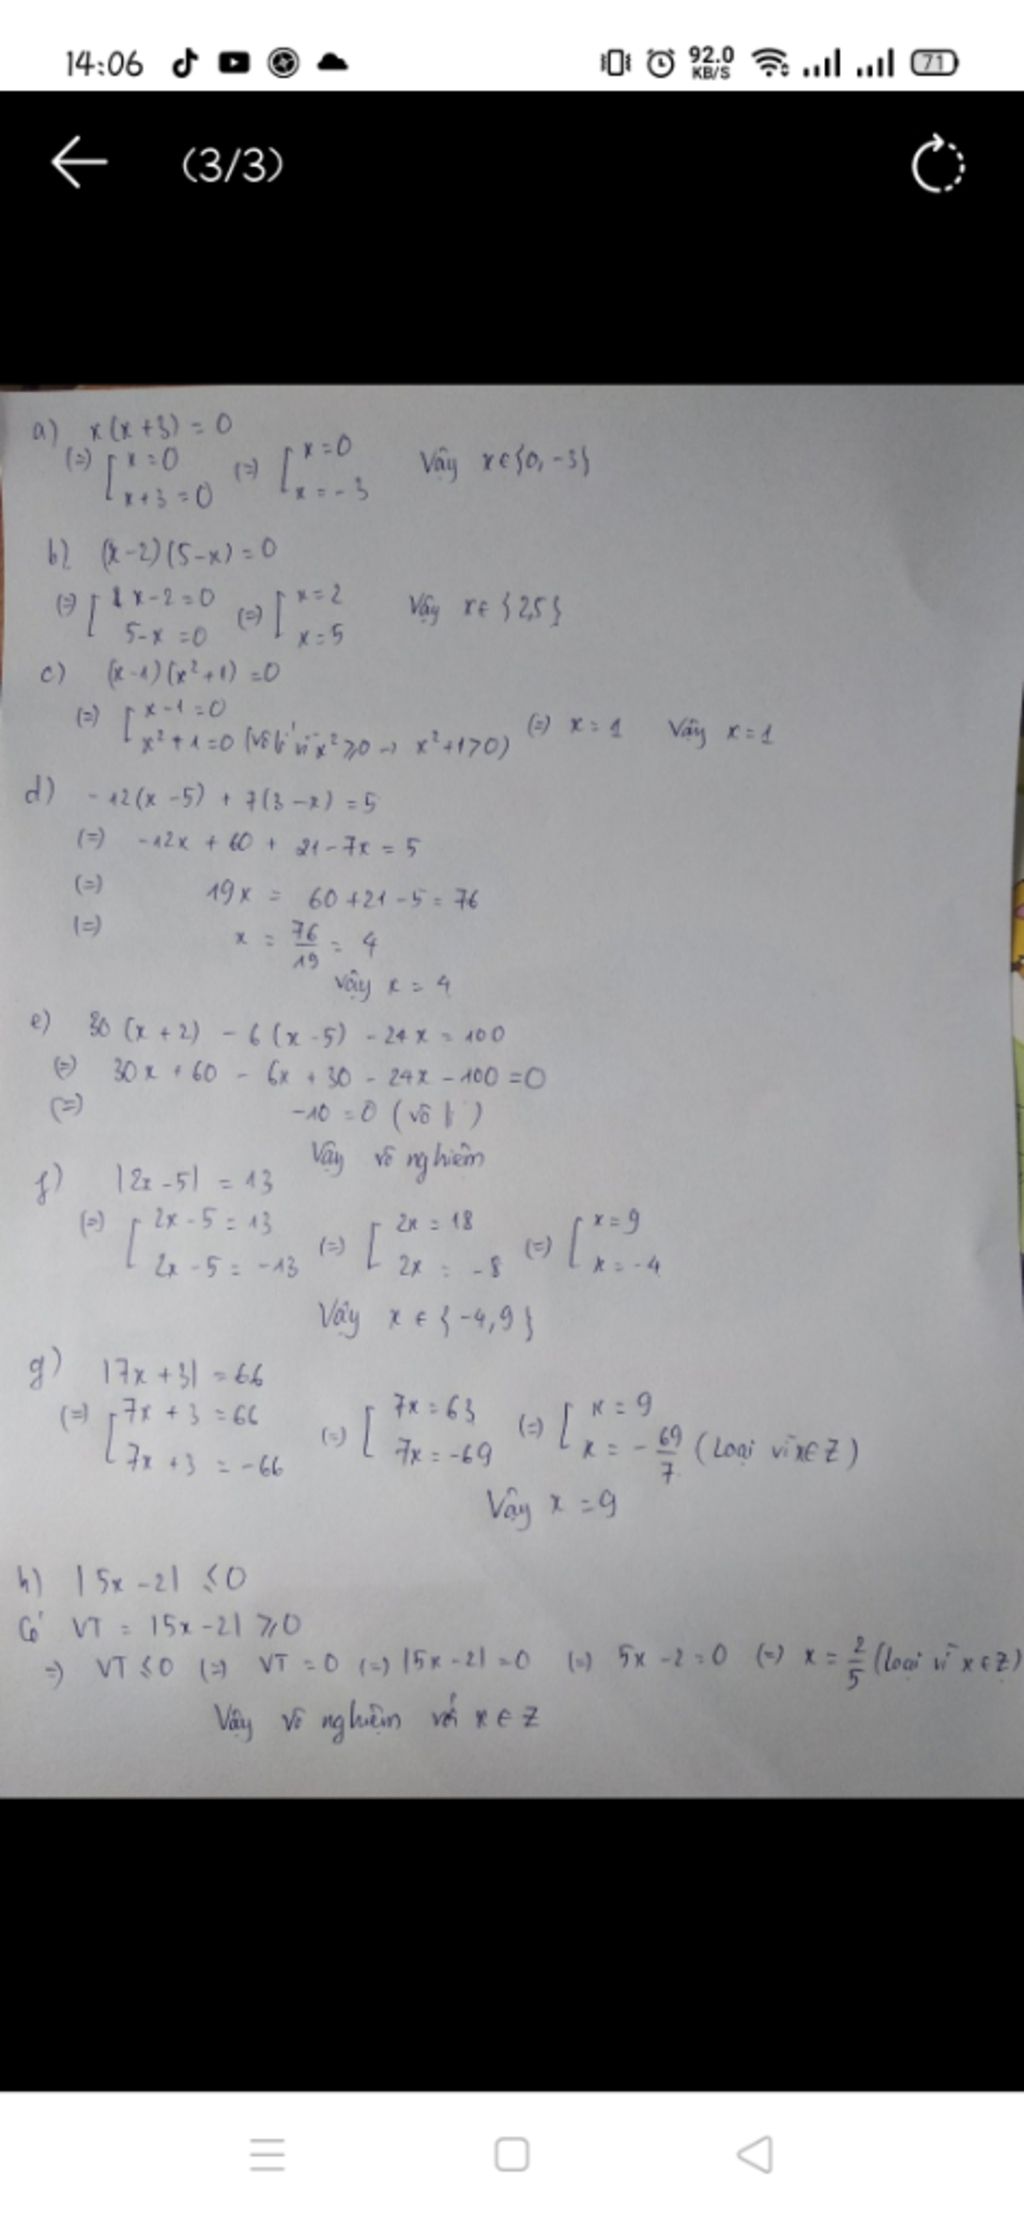 14:06 92.0 KB/S 71
(3/3)
a) x(x+3) = 0
(=) [ x = 0 (=) [ x = 0 Vậy x ∈ {0, -3}
x+3 = 0 x = -3
b) (x-2)(5-x) = 0
(=) [ x-2 = 0 (=) [ x = 2 Vậy x ∈ {2,5}
5-x = 0 x = 5
c) (x-1)(x²+1) = 0
(=) [ x-1 = 0 (=) x = 1 Vậy x = 1
x²+1 = 0 (vô lí vì x² ⩾ 0 → x²+1>0)
d) -12(x-5) + 7(3-x) = 5
(=) -12x + 60 + 21-7x = 5
(=) 19x = 60+21-5 = 76
(=) x = 76/19 = 4
Vậy x = 4
e) 30(x+2) - 6(x-5) - 24x = 100
(=) 30x + 60 - 6x + 30 - 24x - 100 = 0
(=) -10 = 0 (vô lí)
Vậy vô nghiêm
f) |2x-5| = 13
(=) [ 2x-5 = 13 (=) [ 2x = 18 (=) [ x = 9
2x-5 = -13 2x = -8 x = -4
Vậy x ∈ {-4,9}
g) |7x+3| = 66
(=) [ 7x+3 = 66 (=) [ 7x = 63 (=) [ x = 9
7x+3 = -66 7x = -69 x = -69/7 (Loại vì x∈Z)
Vậy x = 9
h) |5x-2| ⩽ 0
Có VT = |5x-2| ⩾ 0
=) VT ⩽ 0 (=) VT = 0 (=) |5x-2| = 0 (=) 5x-2 = 0 (=) x = 2/5 (loại vì x∈Z)
Vậy vô nghiệm với x ∈ Z